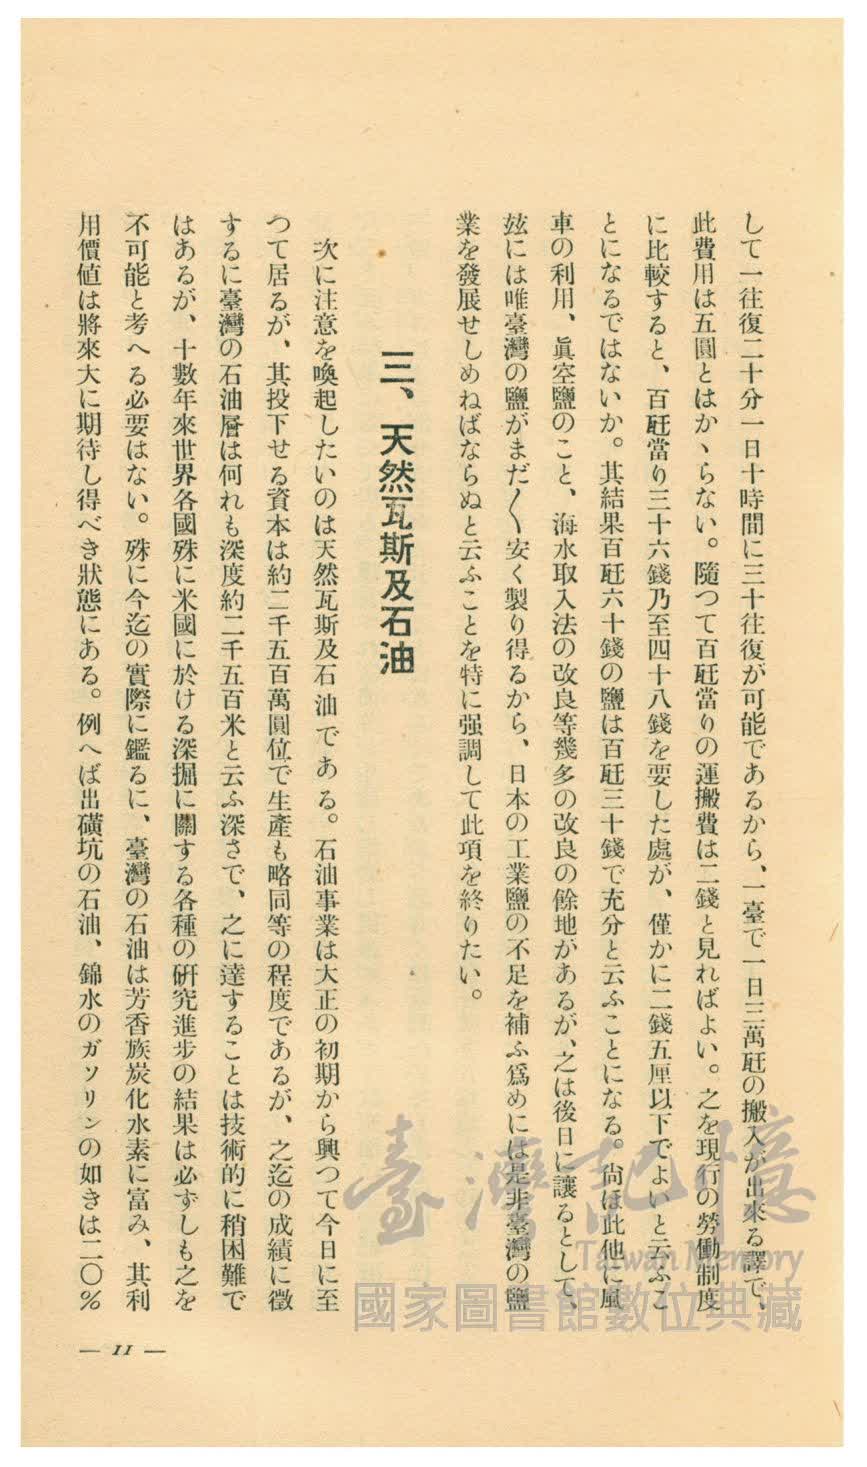 して一往復二十分一日十時間に三十往復が可能であるから、一臺で一日三萬瓩の搬入が出來る譯で、
此費用は五圓とはかゝらない。隨つて百瓩當りの運搬費は二錢と見ればよい。之を現行の勞働制度
に比較すると、百瓩當り三十六錢乃至四十八錢を要した處が、僅かに二錢五厘以下でよいと云ふこ
とになるではないか。其結果百瓩六十錢の鹽は百瓩三十錢で充分と云ふことになる。尙ほ此他に風
車の利用、眞空鹽のこと、海水取入法の改良等幾多の改良の餘地があるが、之は後日に讓るとして、
玆には唯臺灣の鹽がまだ〱安く製り得るから、日本の工業鹽の不足を補ふ爲めには是非臺灣の鹽
業を發展せしめねばならぬと云ふことを特に强調して此項を終りたい。
三、天然瓦斯及石油
次に注意を喚起したいのは天然瓦斯及石油である。石油事業は大正の初期から興つて今日に至
つて居るが、其投下せる資本は約二千五百萬圓位で生產も略同等の程度であるが、之迄の成績に徵
するに臺灣の石油層は何れも深度約二千五百米と云ふ深さで、之に達することは技術的に稍困難で
はあるが、十數年來世界各國殊に米國に於ける深掘に關する各種の硏究進步の結果は必ずしも之を
不可能と考へる必要はない。殊に今迄の實際に鑑るに、臺灣の石油は芳香族炭化水素に富み、其利
用價値は將來大に期待し得べき狀態にある。例へば出磺坑の石油、錦水のガソリンの如きは二〇%
— 11 —
臺灣記憶
Taiwan Memory
國家圖書館數位典藏